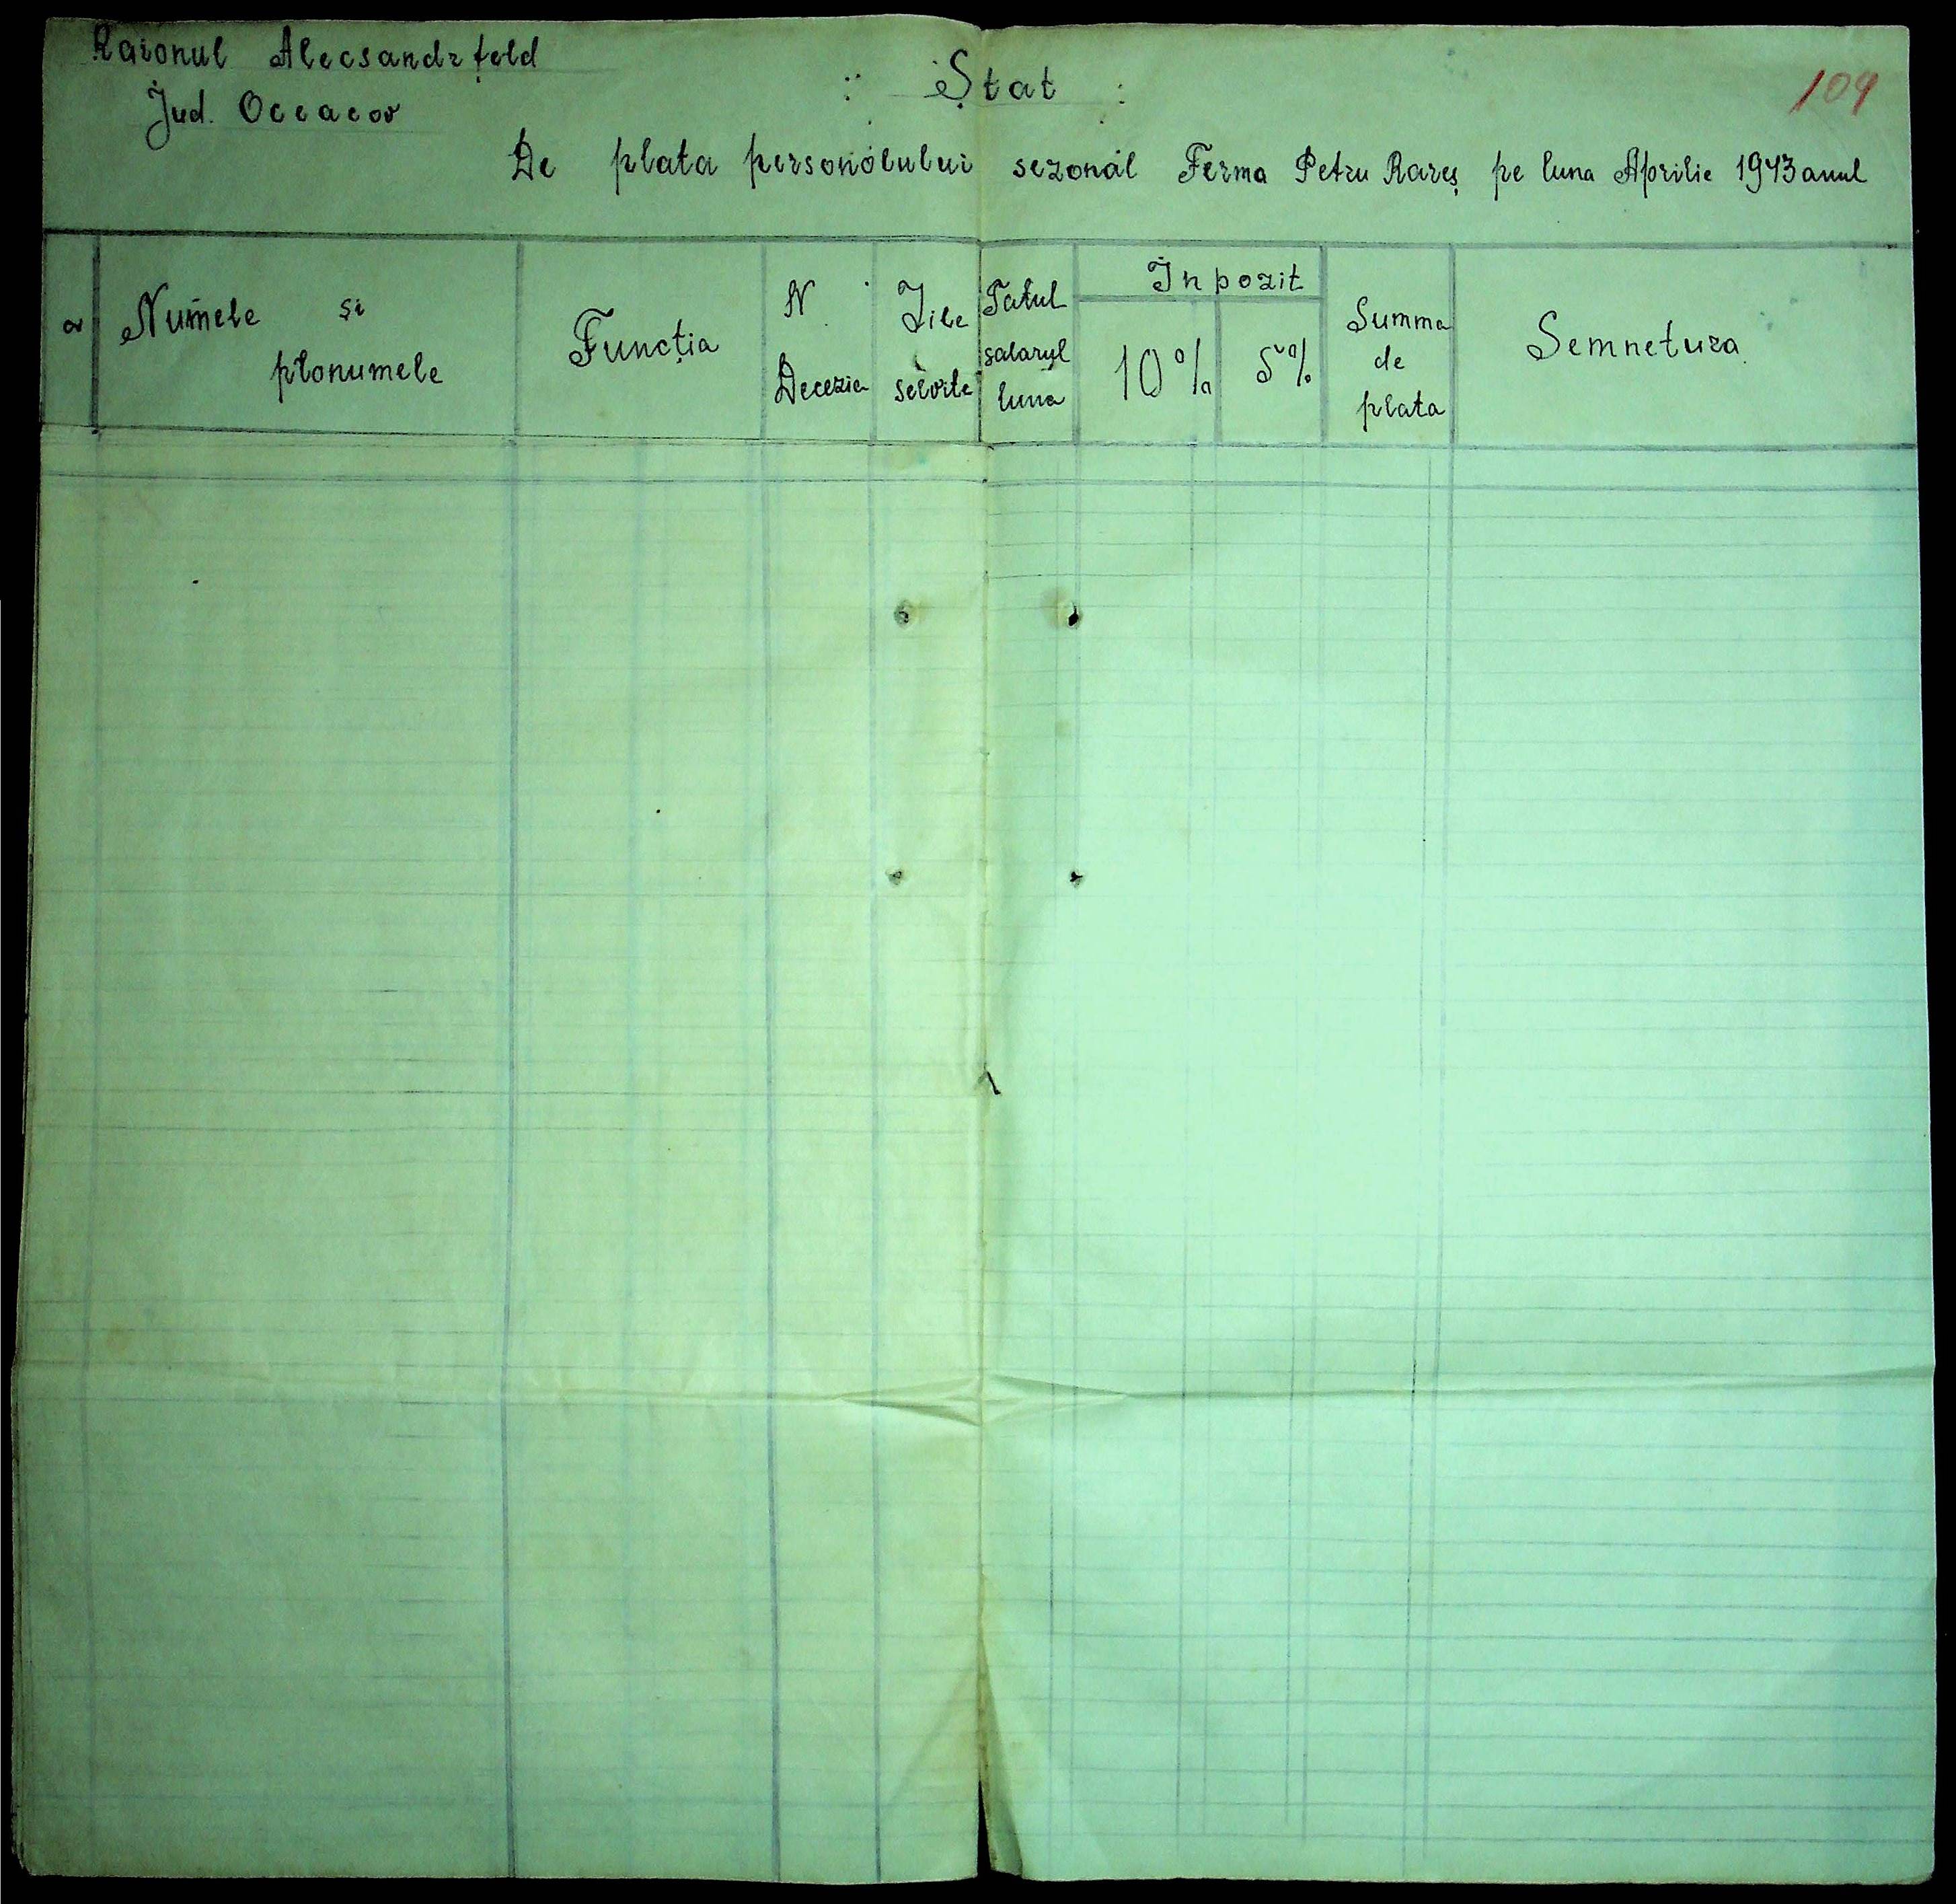 Raionul Alecsandrfeld
Jud. Oceacov
: Ștat :
109
De plata personolului sezonal Ferma Petru Rareș pe luna Aprilie 1943 anul
Numele și
pronumele
Funcția
N
Decezia
Zile
servite
Tatul
salaryl
luna
Inpozit
10%
5%
Summa
de
plata
Semnetura